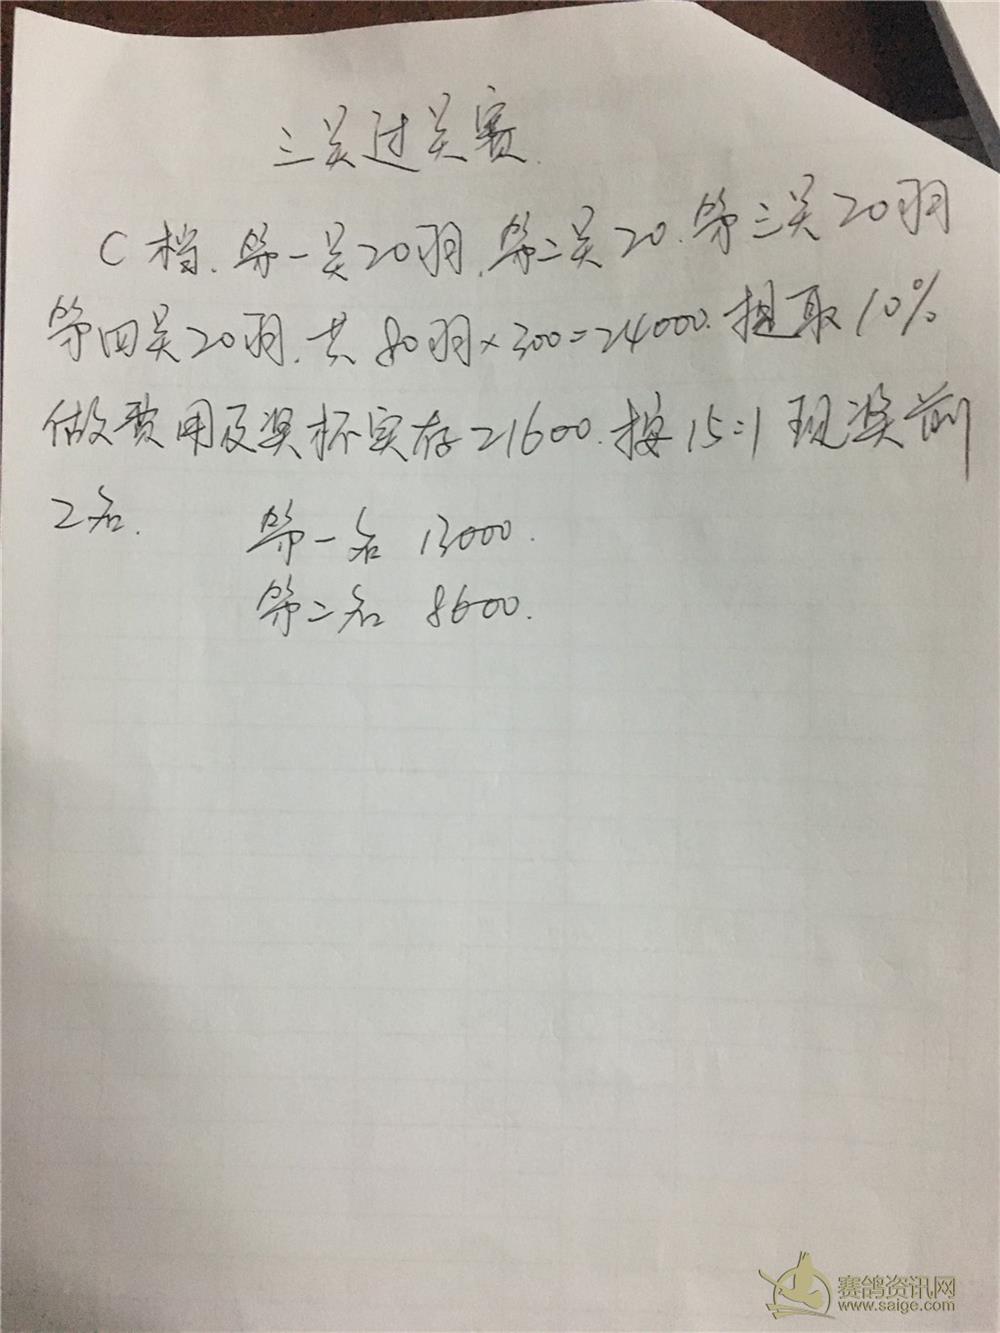 三关过关赛.
C档.第一关20羽.第二关20.第三关20羽
第四关20羽.共80羽×300=24000.提取10%
做费用及奖杯实存21600.按15:1现奖前
2名.
第一名 13000.
第二名 8600.
赛鸽资讯网
www.saige.com